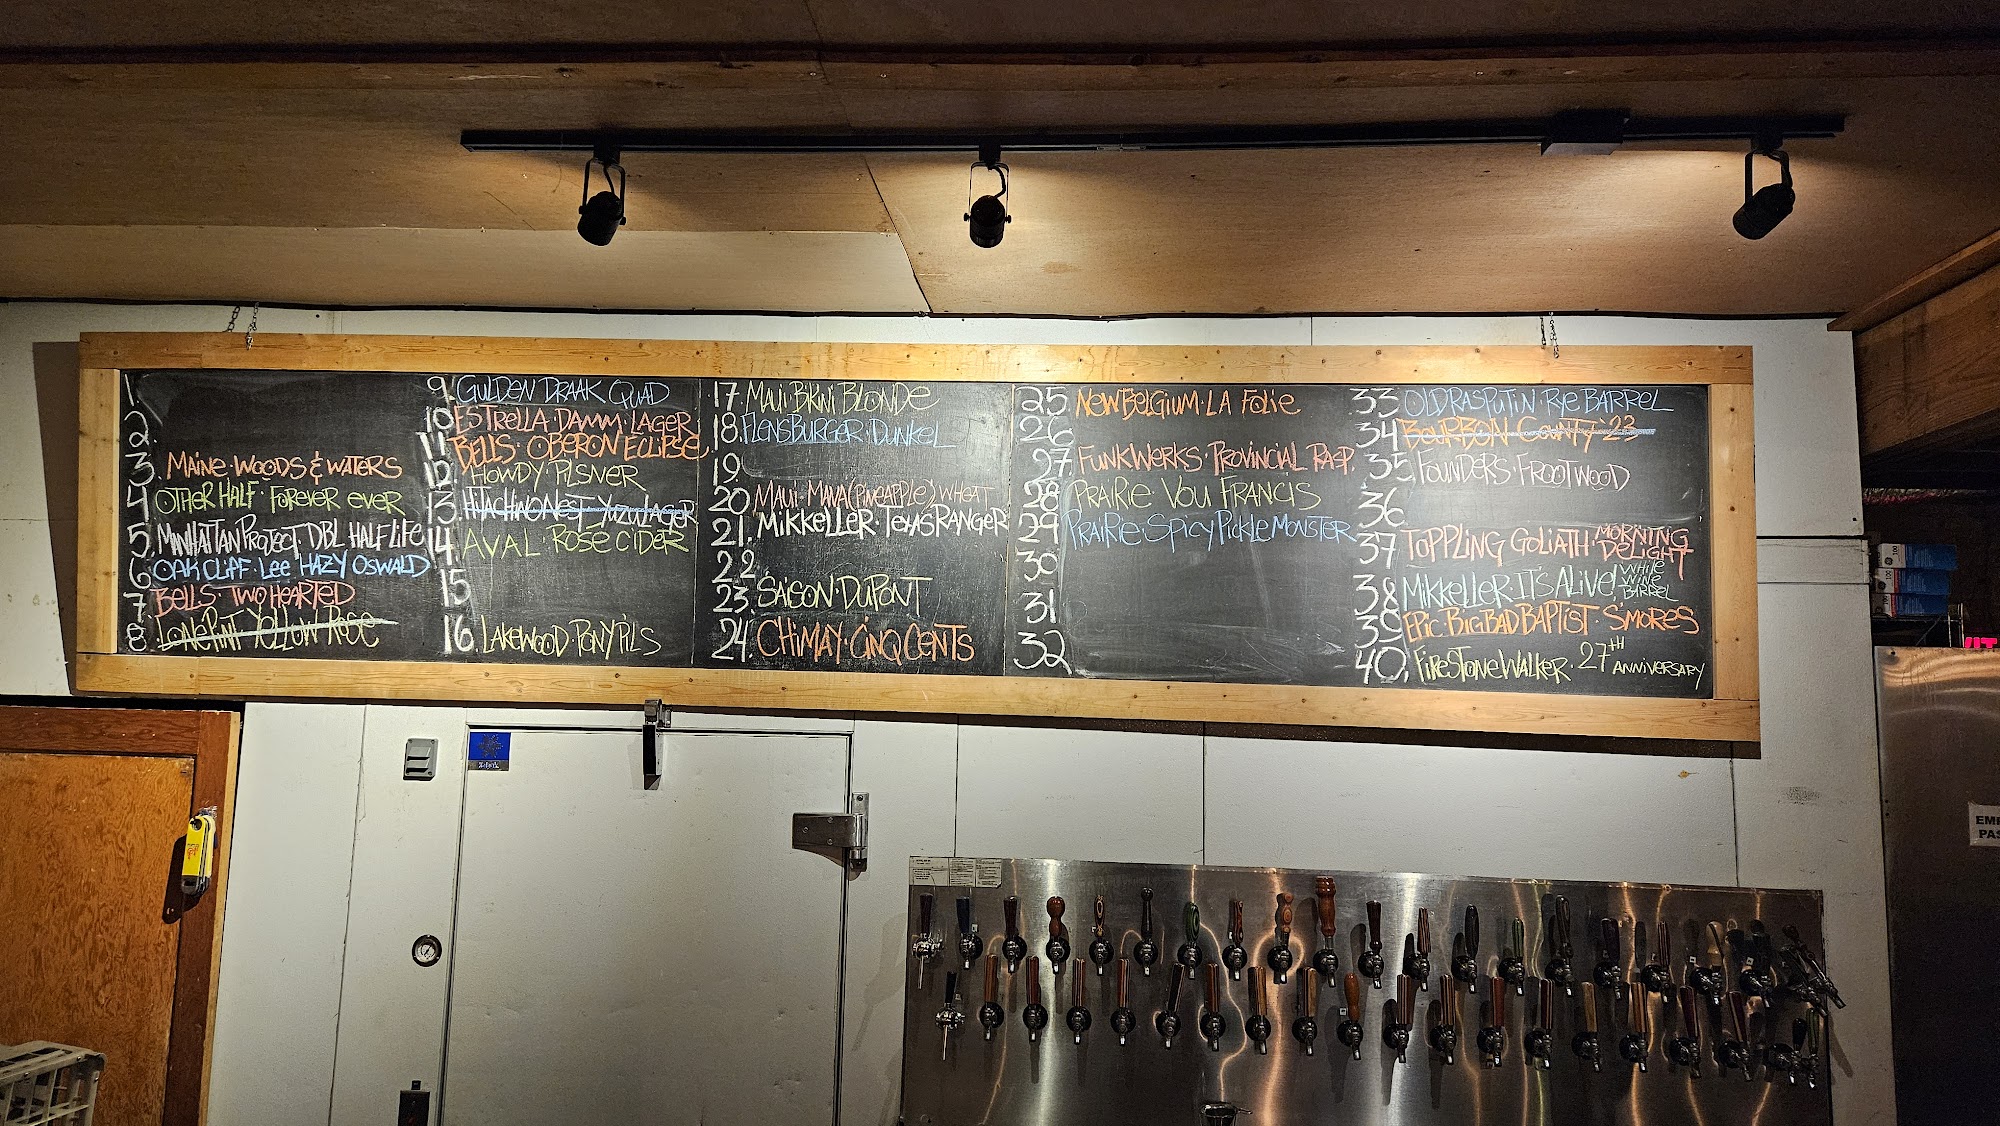 1
2.
3. MAINE · WOODS & WATERS
4 OTHER HALF · FOREVER EVER
5. MANHATTAN PROJECT · DBL HALF LIFE
6 OAK CLIFF · Lee HAZY OSWALD
7 BELLS · TWO HEARTED
8. LONE PINT · YELLOW ROSE
9. GULDEN DRAAK QUAD
10 ESTRELLA · DAMM · LAGER
11 BELLS · OBERON ECLIPSE
12 HOWDY · PILSNER
13. HITACHINO NEST YUZU LAGER
14 AVAL · ROSE CIDER
15
16. LAKEWOOD PONY PILS
17. MAUI · BIKINI BLONDE
18. FLENSBURGER · DUNKEL
19.
20 MAUI · MANA (PINEAPPLE) WHEAT
21. MIKKELLER · TEXAS RANGER
22.
23. SAISON · DUPONT
24. CHIMAY · CINQ CENTS
25 NEW BELGIUM · LA FOLIE
26
27 FUNKWERKS · PROVINCIAL RASP.
28 PRAIRIE · VOU FRANCIS
29 PRAIRIE · SPICY PICKLE MONSTER
30
31
32
33 OLD RASPUTIN · RYE BARREL
34 BOURBON COUNTY 23
35. FOUNDERS · FROOTWOOD
36
37 TOPPLING GOLIATH · MORNING DELIGHT
38 MIKKELLER · IT'S ALIVE! WHITE WINE BARREL
39 EPIC · BIG BAD BAPTIST · S'MORES
40. FIRESTONE WALKER · 27TH ANNIVERSARY